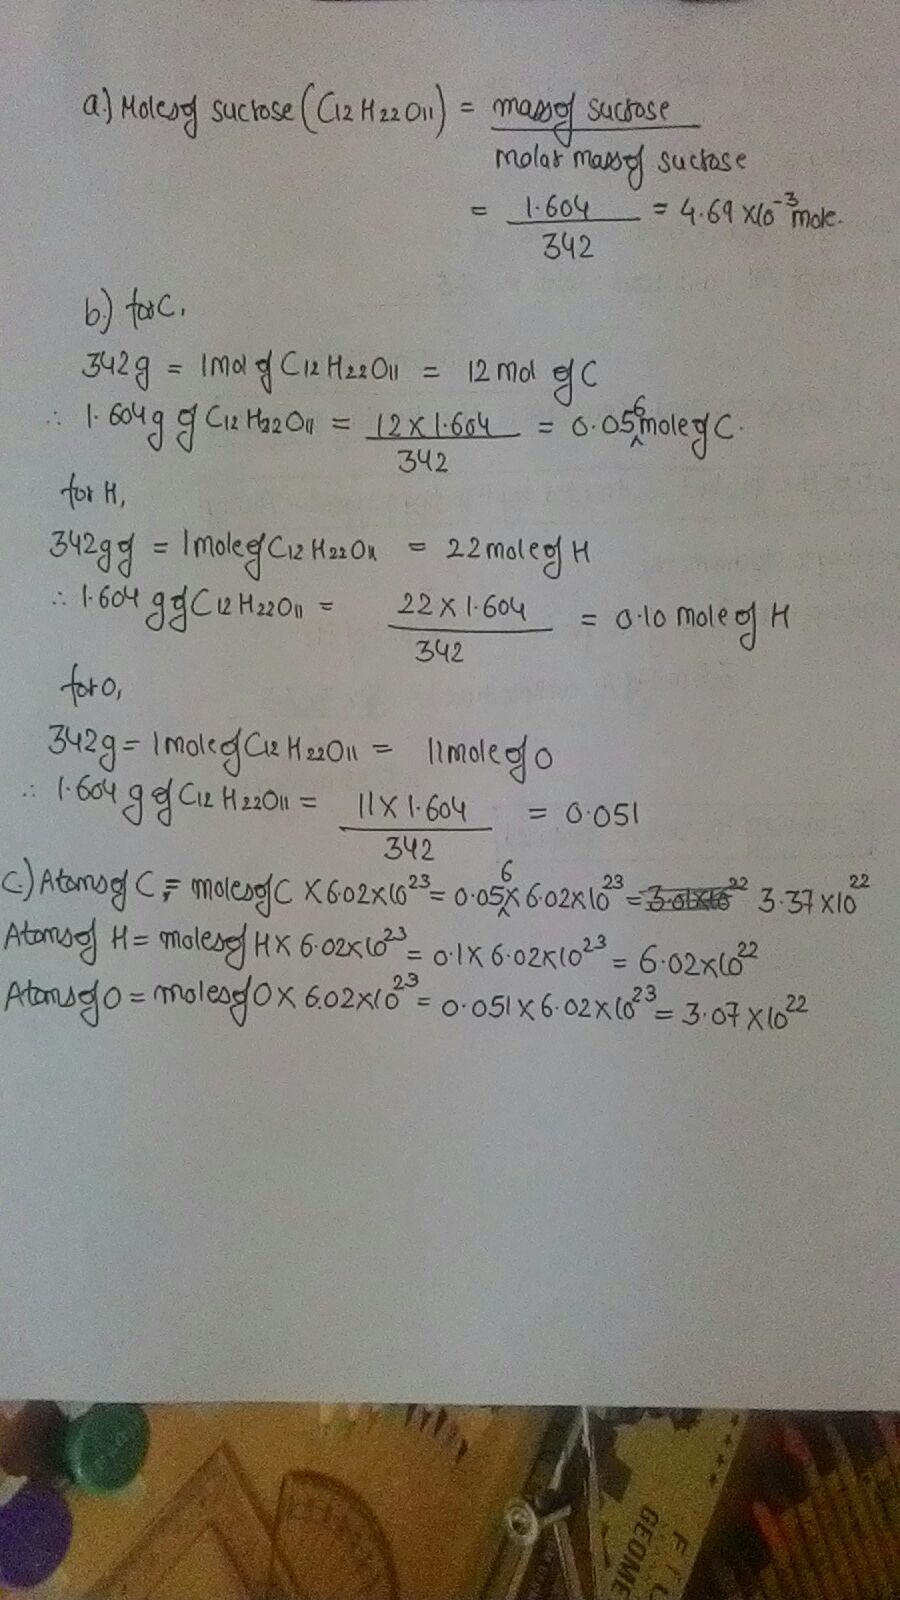 a) Moles of sucrose (C12H22O11) = mass of sucrose
molar mass of sucrose
= 1.604 = 4.69 x10-3 mole.
342
b.) for C,
342g = 1mol of C12H22O11 = 12 mol of C
∴ 1.604g of C12H22O11 = 12 x 1.604 = 0.056 mole of C.
342
for H,
342g of = 1mole of C12H22O11 = 22 mole of H
∴ 1.604 g of C12H22O11 = 22 x 1.604 = 0.10 mole of H
342
for O,
342g = 1mole of C12H22O11 = 11mole of O
∴ 1.604 g of C12H22O11 = 11 x 1.604 = 0.051
342
C.) Atoms of C = moles of C x 6.02x1023 = 0.056 x 6.02x1023 = 3.01x1022 3.37x1022
Atoms of H = moles of H x 6.02x1023 = 0.1 x 6.02x1023 = 6.02x1022
Atoms of O = moles of O x 6.02x1023 = 0.051 x 6.02x1023 = 3.07 x1022
GEOME